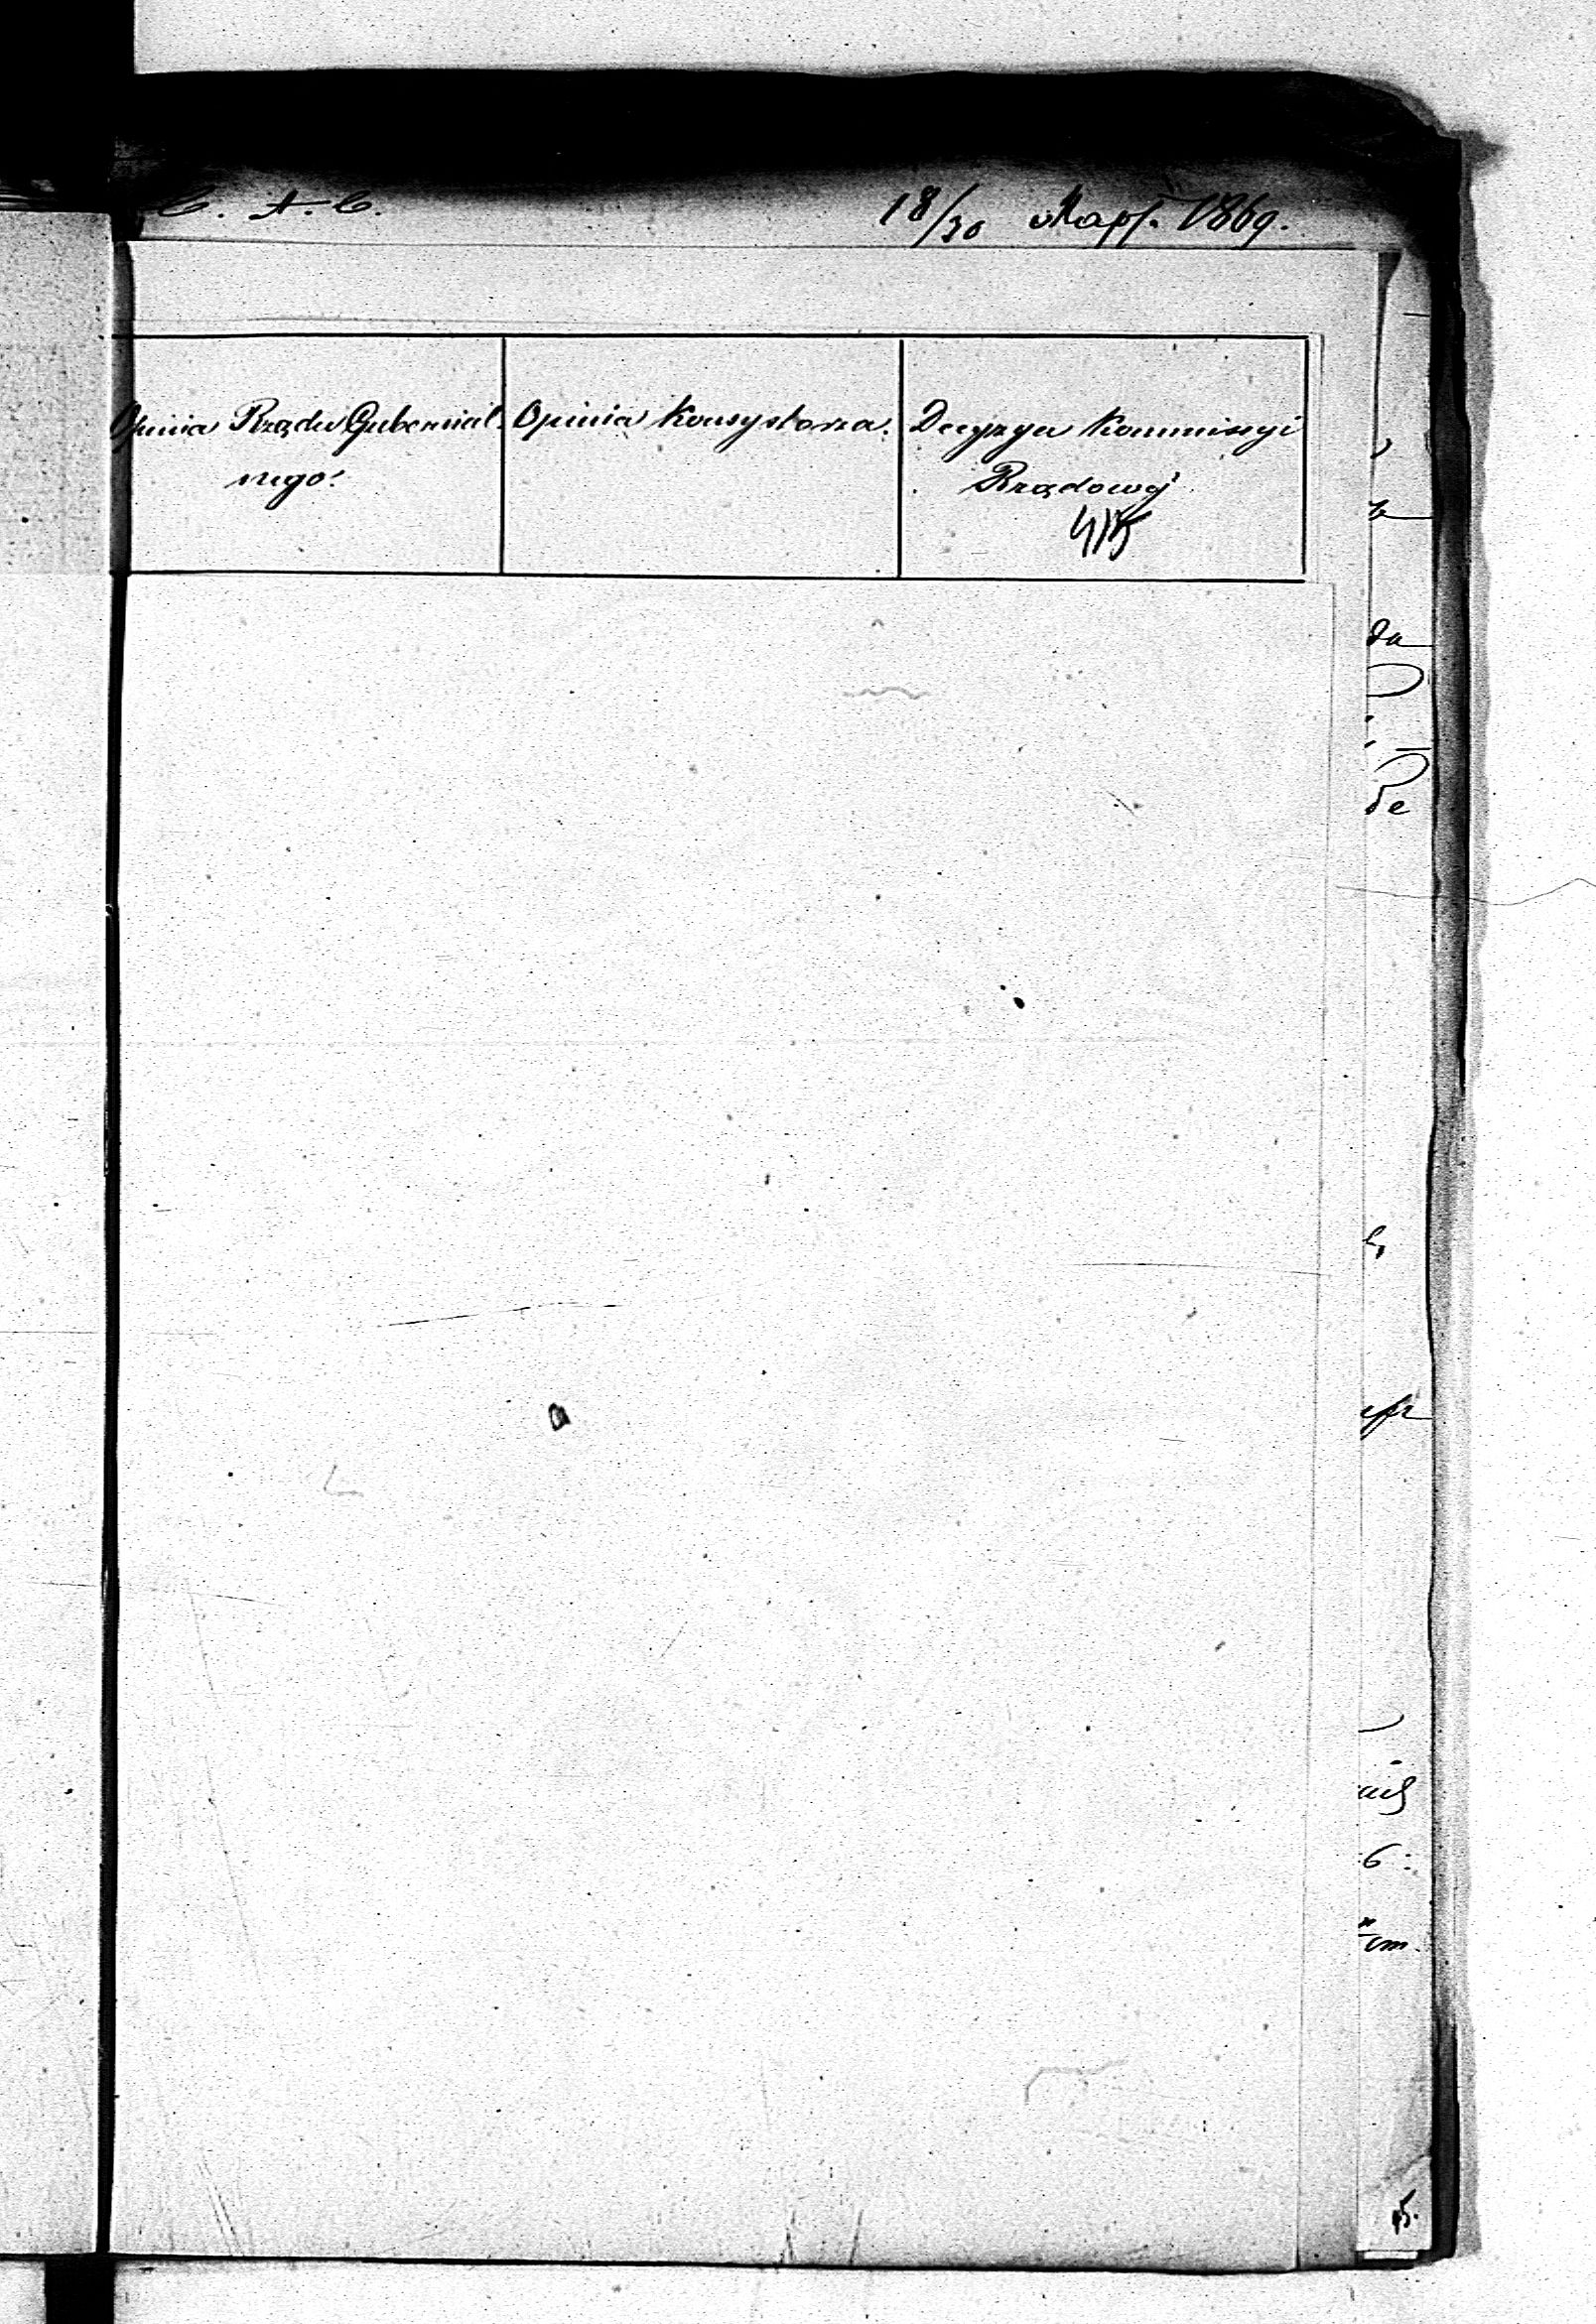 18/30 Март. 1869.
Opinia Rządu Gubernial-
nego.
Opinia Konsystorza.
Decyzya Kommissyi
Rządowéj
da
de
6: